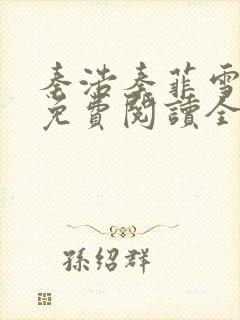 秦浩秦菲雪
免費閱讀全
孫紹群